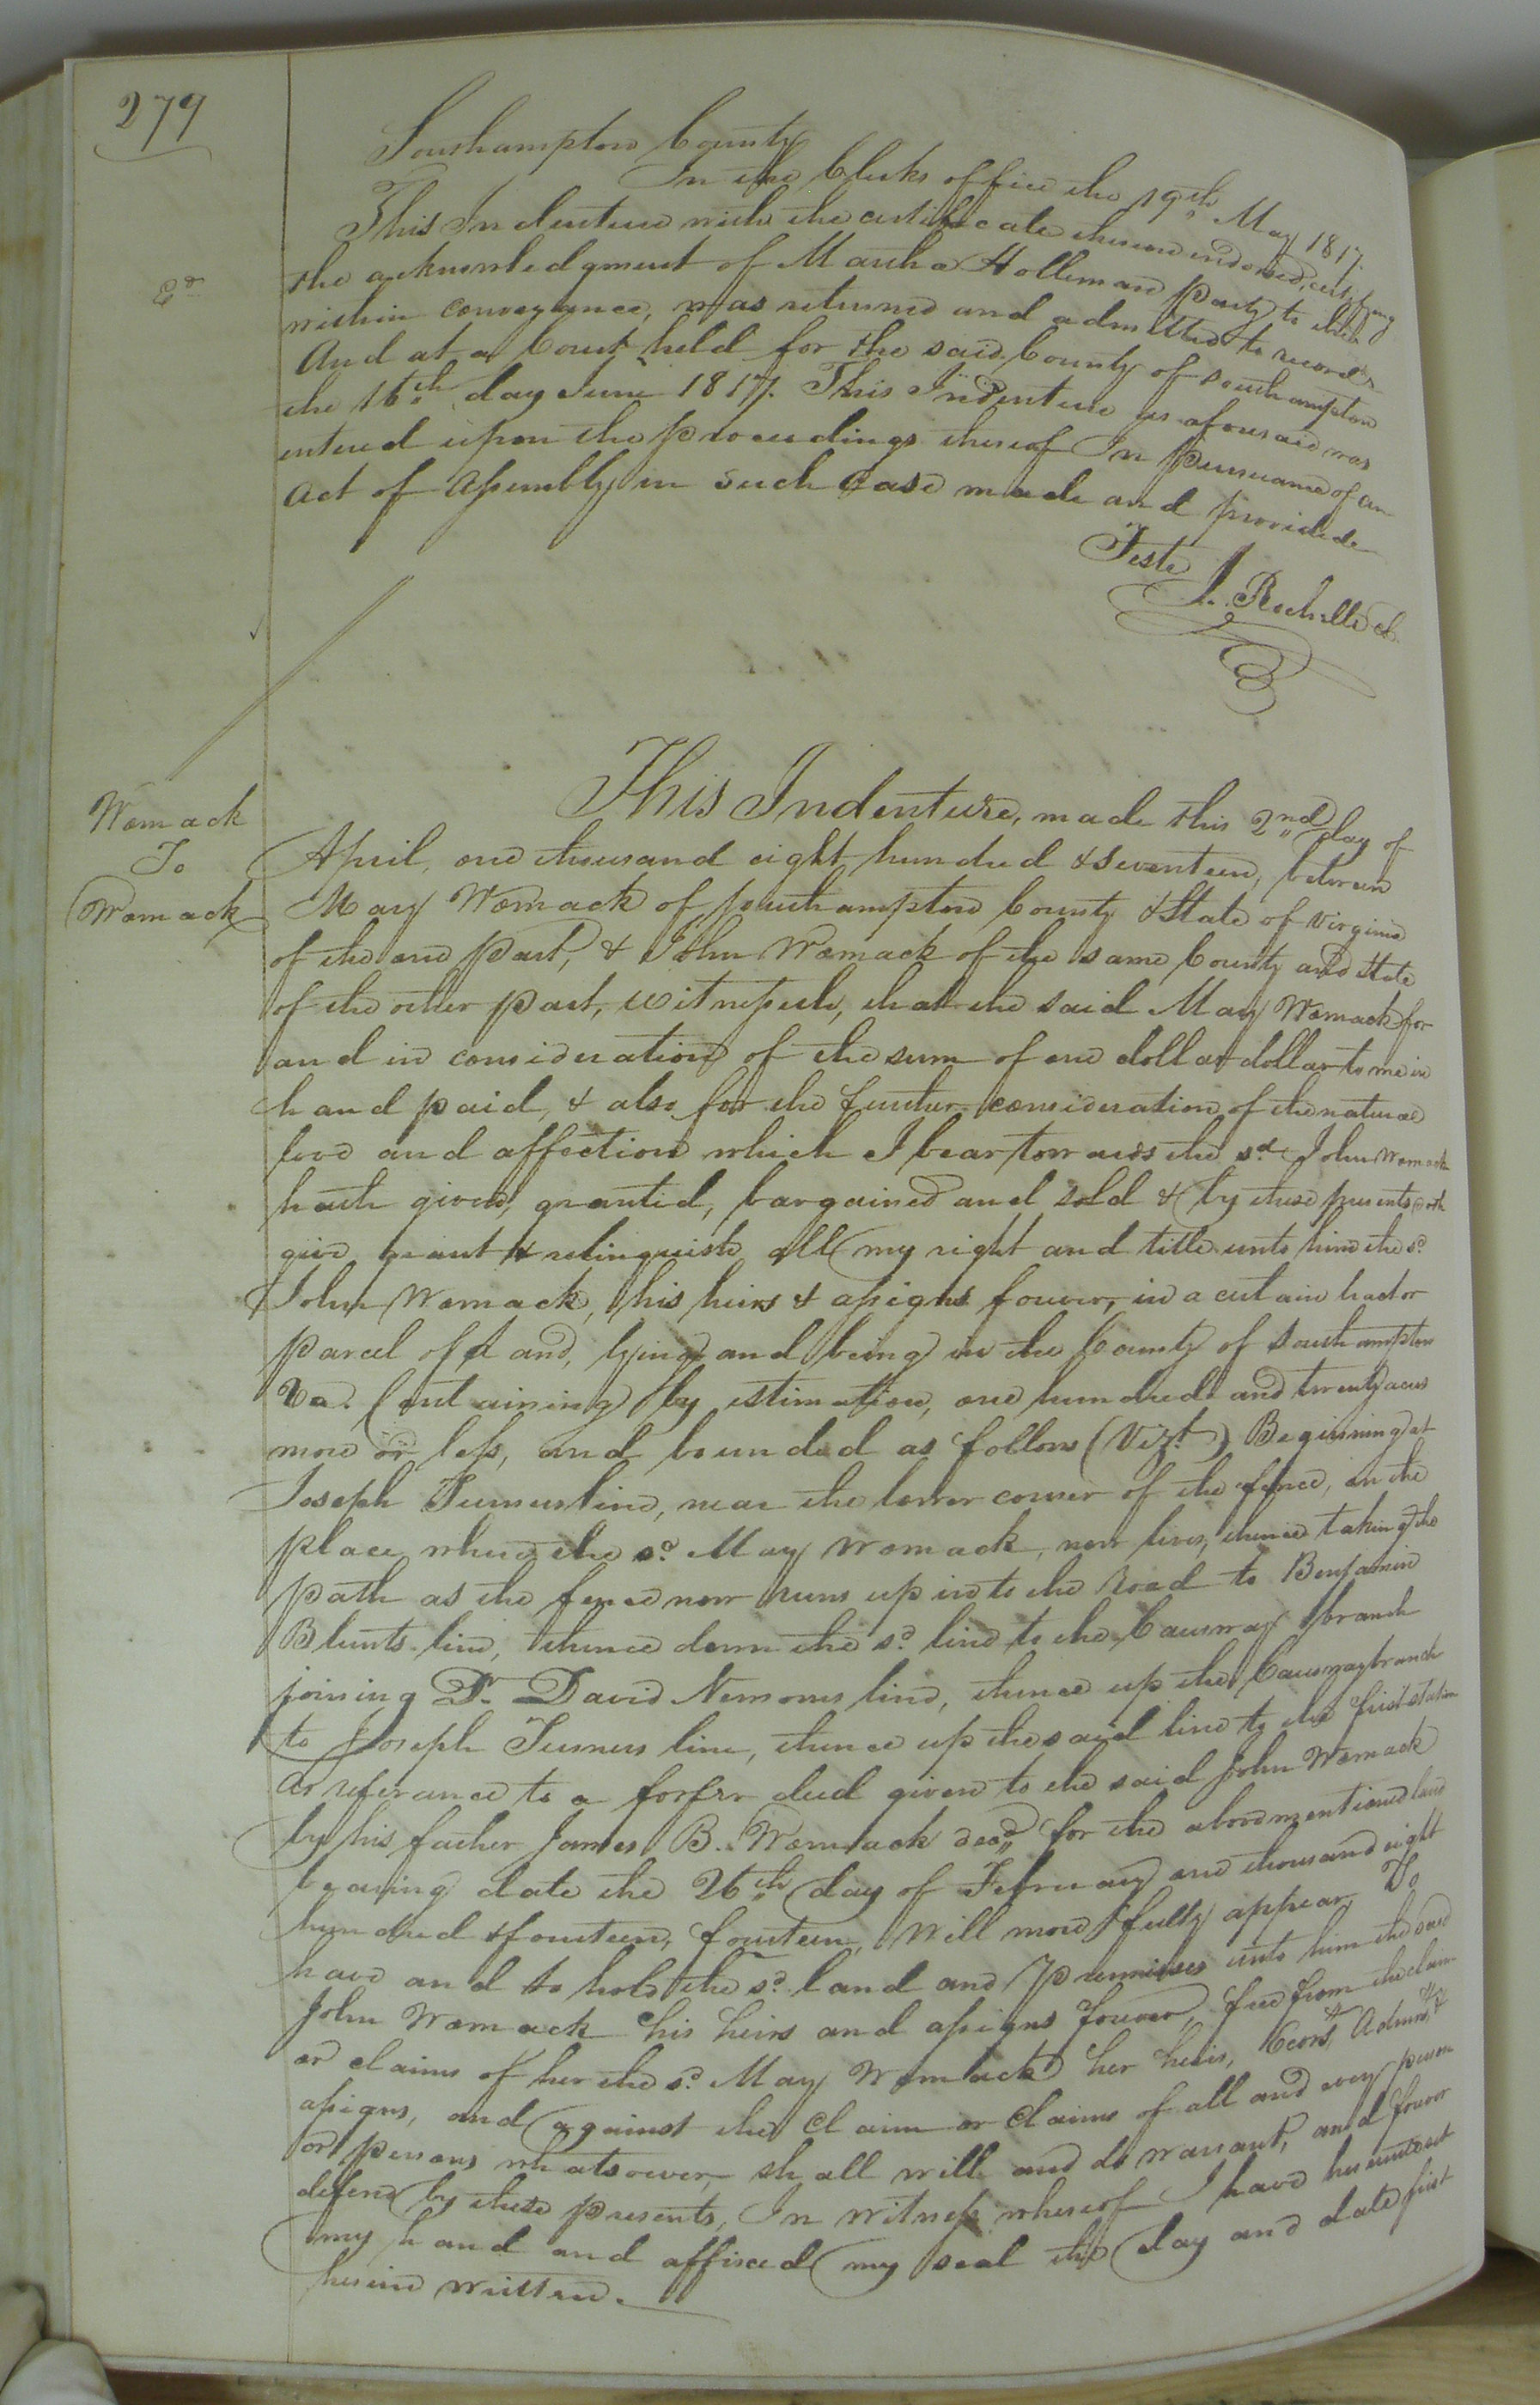 279
Southampton County
In the Clerks office the 19th May 1817.
This Indenture with the certificate thereon endorsed, certifying
the acknowledgment of Martha Holleman party to the
within conveyance, was returned and admitted to record
And at a Court held for the said County of Southampton
the 16th day June 1817. This Indenture as aforesaid was
entered upon the proceedings thereof In pursuance of an
Act of Assembly in such case made and provided
Teste
J. Rochelle Cl.
Womack
To
Womack
This Indenture, made this 2nd day of
April, one thousand eight hundred & seventeen, between
Mary Womack of Southampton County & State of Virginia
of the one part, & John Womack of the same County and State
of the other part, witnesseth, that the said Mary Womack for
and in consideration of the sum of one dollar dollar to me in
hand paid, & also for the further consideration of the natural
love and affection which I bear towards the sd John Womack
hath given, granted, bargained and sold & by these presents doth
give grant & relinquish all my right and title unto him the sd
John Womack, his heirs & assigns forever, in a certain tract or
parcel of Land, lying and being in the County of Southampton
Va. Containing by estimation, one hundred and twenty acres
more or less, and bounded as follows (Vizt.) Beginning at
Joseph Turners line, near the lower corner of the fence, on the
place where the sd Mary Womack, now lives, thence taking the
path as the fence now runs up into the road to Benjamin
Blunts line, thence down the sd line to the Causway branch
joining Dr David Newsoms line, thence up the Causway branch
to Joseph Turners line, thence up the said line to the first station
as referance to a deed given to the said John Womack
by his father James B. Womack decd for the above mentioned land
bearing date the 26th day of February one thousand eight
hundred & fourteen, fourteen, Will more fully appear, To
have and to hold the sd land and premises unto him the said
John Womack his heirs and assigns forever, free from the claim
or claims of her the sd Mary Womack her heirs, Admrs,
assigns, and against the claim or claims of all and every person
or persons whatsoever, shall will and do warrant, and forever
defend by these presents, In witness whereof I have hereunto set
my hand and affixed my seal the day and date first
herein written.